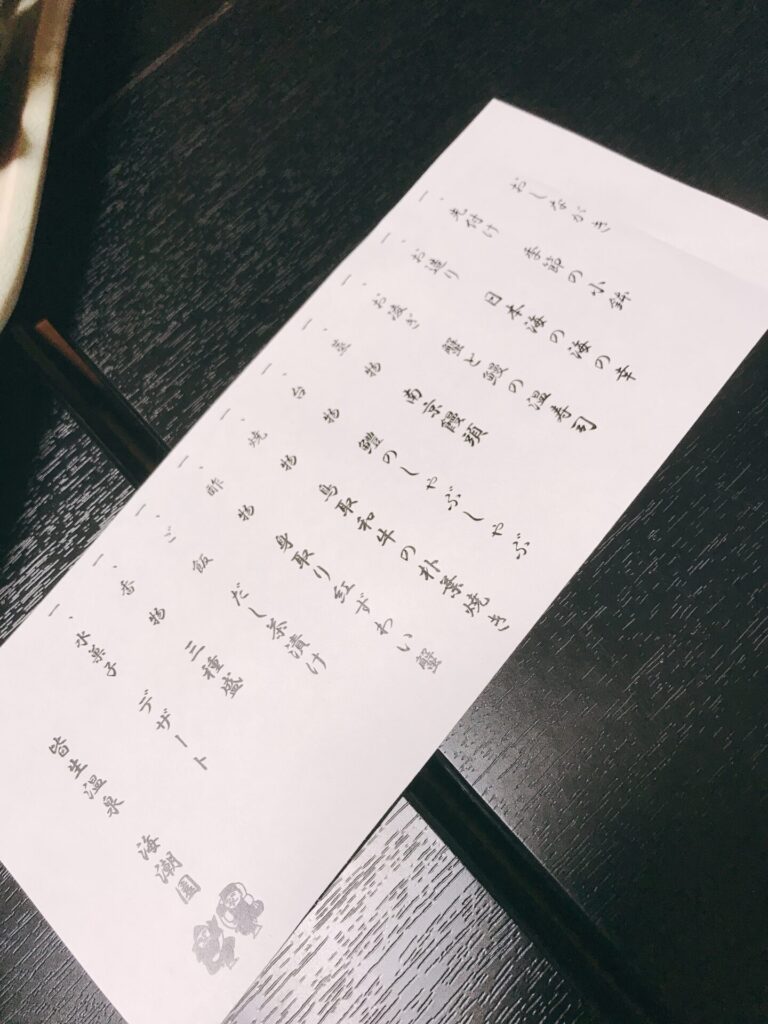 おしながき
一、先付け 季節の小鉢
一、お造り 日本海の海の幸
一、お凌ぎ 蟹と鰻の温寿司
一、蒸物 南京饅頭
一、台物 鱧のしゃぶしゃぶ
一、焼物 鳥取和牛の朴葉焼き
一、酢物 身取り紅ずわい蟹
一、ご飯 だし茶漬け
一、香物 三種盛
一、水菓子 デザート
皆生温泉 海潮園